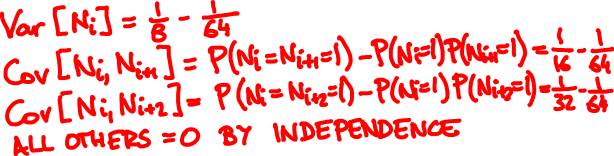 Var [Ni] = 1/8 - 1/64
Cov [Ni, Ni+1] = P(Ni = Ni+1 = 1) - P(Ni=1)P(Ni+1=1) = 1/16 - 1/64
Cov [Ni, Ni+2] = P(Ni = Ni+2 = 1) - P(Ni=1)P(Ni+2=1) = 1/32 - 1/64
ALL OTHERS = 0 BY INDEPENDENCE